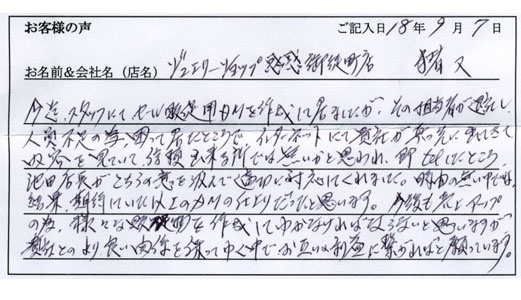 お客様の声
ご記入日 18年 9月 7日
お名前＆会社名（店名） ジュエリーショップ 御徒町店 猪又
今迄、スタッフにて、セール販促用カタログを作成して居ましたが、その担当者が退社し、
人員不足の為、困って居たところで、インターネットにて貴社が真っ先に出てきて
内容を見ていて、信頼出来る所では無いかと思われ、即TELしたところ、
池田店長がこちらの意を汲んで適切に対応してくれました。時間の無い中でも、
結果、期待していた以上の仕上りだったと思います。今後も売上アップ
の為、様々な販促を作成してゆかなければならないと思いますが、
貴社とのより良い関係を保ってゆく中で、お互いの利益に繋がればと願っています。